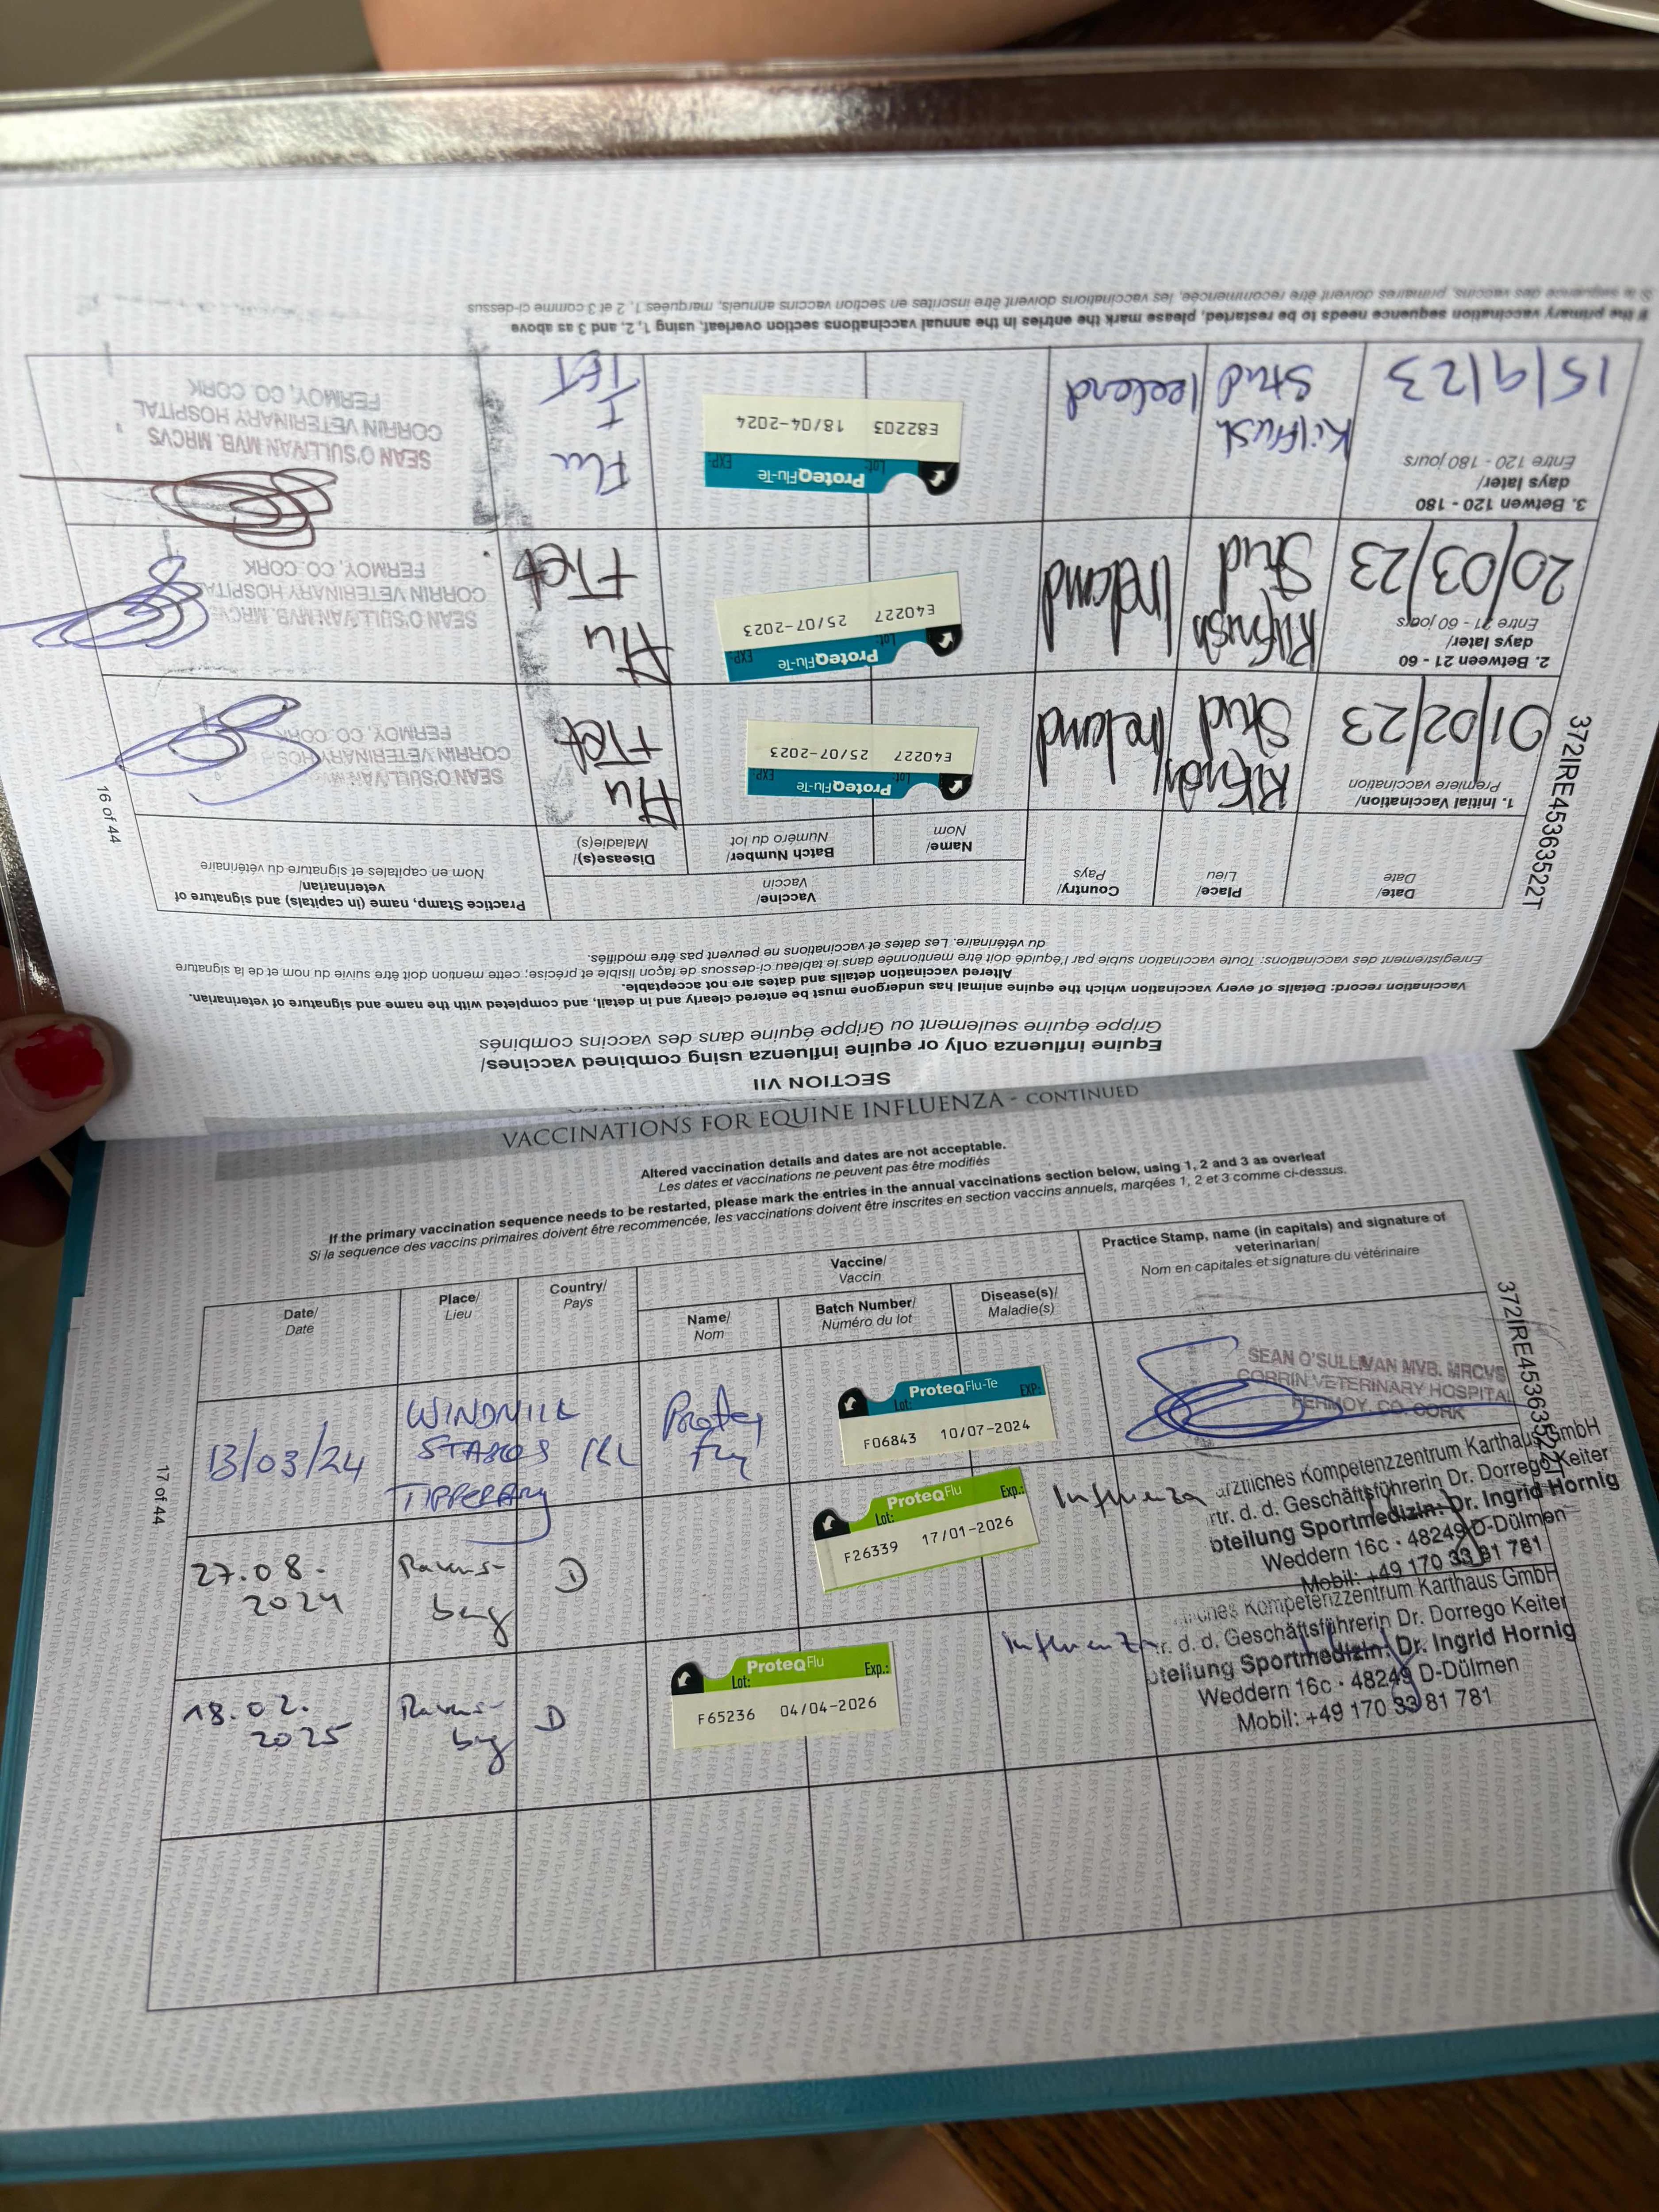 SECTION VII
Equine influenza only or equine influenza using combined vaccines/
Grippe équine seulement ou Grippe équine dans des vaccins combinés
Vaccination record: Details of every vaccination which the equine animal has undergone must be entered clearly and in detail, and completed with the name and signature of veterinarian.
Altered vaccination details and dates are not acceptable.
Enregistrement des vaccinations: Toute vaccination subie par l'équidé doit être mentionnée dans le tableau ci-dessous de façon lisible et précise; cette mention doit être suivie du nom et de la signature
du vétérinaire. Les dates et vaccinations ne peuvent pas être modifiés.
Date/
Date
Place/
Lieu
Country/
Pays
Vaccine/
Vaccin
Name/
Nom
Batch Number/
Numéro du lot
Disease(s)/
Maladie(s)
Practice Stamp, name (in capitals) and signature of
veterinarian/
Nom en capitales et signature du vétérinaire
1. Initial Vaccination/
Première vaccination
01/02/23
Stud
Ireland
ProteqFlu-Te
Lot: EXP:
E40227 25/07-2023
Flu
+Tet
SEAN O'SULLIVAN MVB. MRCVS
CORRIN VETERINARY HOSPITAL
FERMOY, CO. CORK
2. Between 21 - 60
days later/
Entre 21 - 60 jours
20/03/23
Kilfrush
Stud
Ireland
ProteqFlu-Te
Lot: EXP:
E40227 25/07-2023
Flu
+Tet
SEAN O'SULLIVAN MVB. MRCVS
CORRIN VETERINARY HOSPITAL
FERMOY, CO. CORK
3. Betwen 120 - 180
days later/
Entre 120 - 180 jours
15/9/23
Kilfrush
Stud
Ireland
ProteqFlu-Te
Lot: EXP:
E82203 18/04-2024
Flu
+
TET
SEAN O'SULLIVAN MVB. MRCVS
CORRIN VETERINARY HOSPITAL
FERMOY, CO. CORK
If the primary vaccination sequence needs to be restarted, please mark the entries in the annual vaccinations section overleaf, using 1, 2, and 3 as above
Si la sequence des vaccins primaires doivent être recommencée, les vaccinations doivent être inscrites en section vaccins annuels, marquées 1, 2 et 3 comme ci-dessus
372IRE45363522T
16 of 44
VACCINATIONS FOR EQUINE INFLUENZA - CONTINUED
Altered vaccination details and dates are not acceptable.
Les dates et vaccinations ne peuvent pas être modifiés
If the primary vaccination sequence needs to be restarted, please mark the entries in the annual vaccinations section below, using 1, 2 and 3 as overleaf
Si la sequence des vaccins primaires doivent être recommencée, les vaccinations doivent être inscrites en section vaccins annuels, marqées 1, 2 et 3 comme ci-dessus.
Date/
Date
Place/
Lieu
Country/
Pays
Vaccine/
Vaccin
Name/
Nom
Batch Number/
Numéro du lot
Disease(s)/
Maladie(s)
Practice Stamp, name (in capitals) and signature of
veterinarian/
Nom en capitales et signature du vétérinaire
13/03/24
WINDMILL
STABLES
TIPPERARY
IRL
Proteq
Flu
ProteqFlu-Te
Lot: EXP:
F06843 10/07-2024
SEAN O'SULLIVAN MVB. MRCVS
CORRIN VETERINARY HOSPITAL
FERMOY, CO. CORK
27.08.
2024
Ravens-
berg
D
ProteqFlu
Lot: Exp.:
F26339 17/01-2026
Influenza
Kompetenzzentrum Karthaus GmbH
d. d. Geschäftsführerin Dr. Dorrego Keiter
bteilung Sportmedizin: Dr. Ingrid Hornig
Weddern 16c · 48249 D-Dülmen
Mobil: +49 170 33 81 781
18.02.
2025
Ravens-
berg
D
ProteqFlu
Lot: Exp.:
F65236 04/04-2026
Influenza
Kompetenzzentrum Karthaus GmbH
r. d. d. Geschäftsführerin Dr. Dorrego Keiter
bteilung Sportmedizin: Dr. Ingrid Hornig
Weddern 16c · 48249 D-Dülmen
Mobil: +49 170 33 81 781
372IRE45363522T
17 of 44